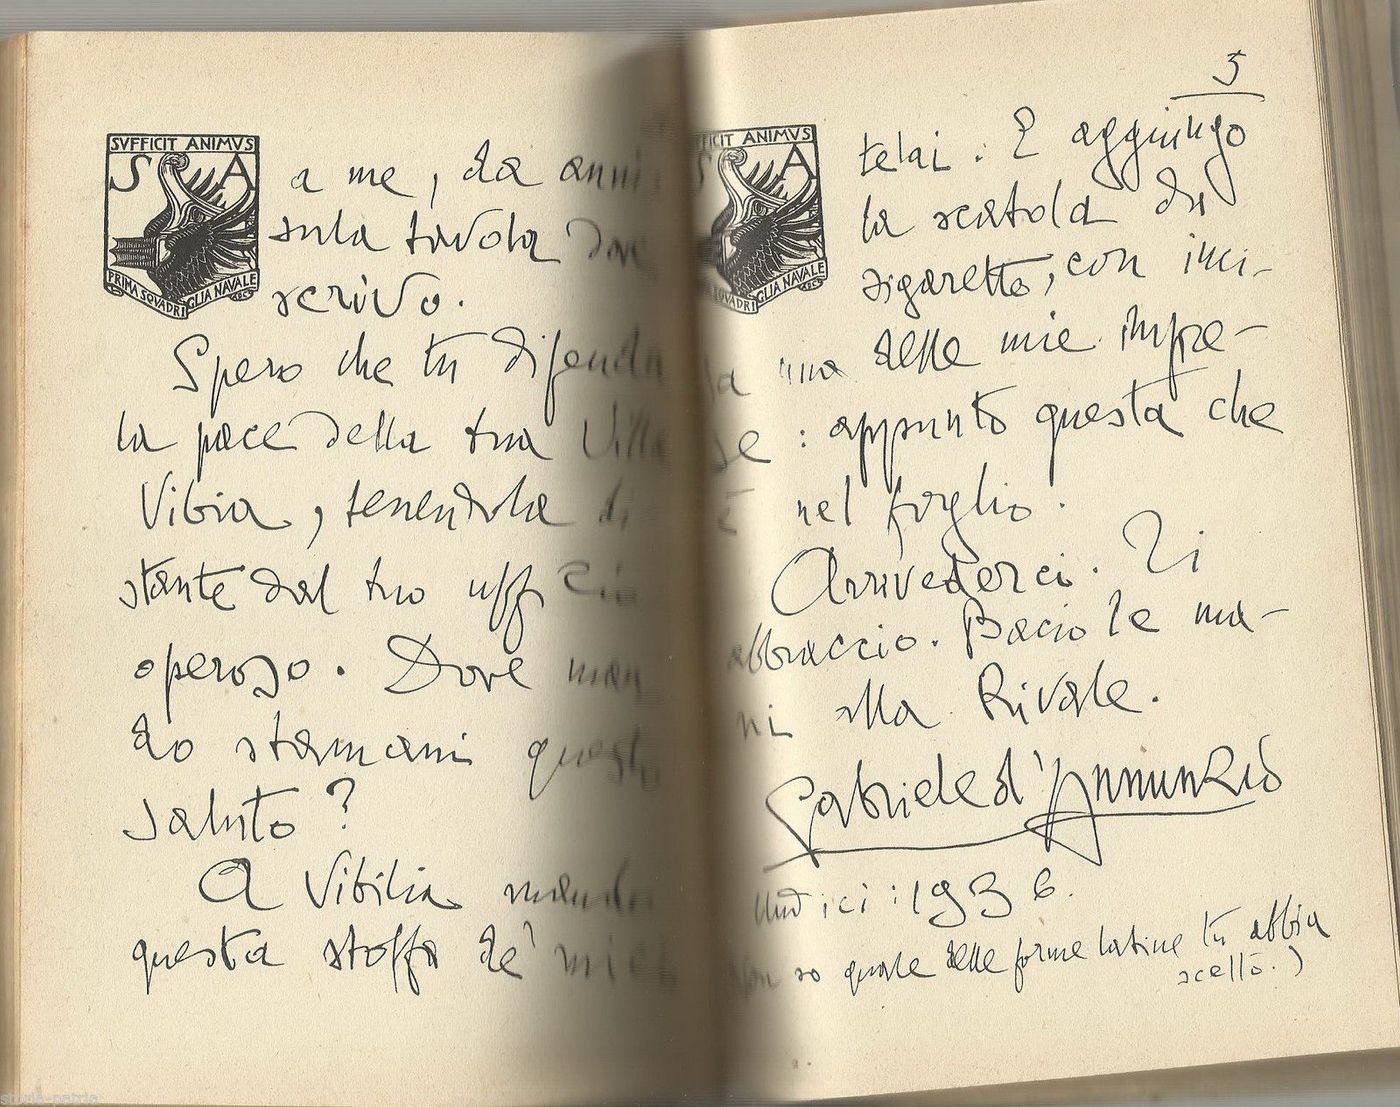 SVFFICIT ANIMVS
S A
PRIMA SQVADRIGLIA NAVALE
a me, da anni
sulla tavola dove
scrivo.
Spero che tu difenda
la pace della tua Villa
Vibia, tenendola di
stante dal tuo ufficio
operoso. Dove man
do stamani questo
saluto?
A Vibilia mando
questa stoffa de' miei
5
FICIT ANIMVS
S A
SQVADRIGLIA NAVALE
telai. E aggiungo
la scatola di
sigarette, con inci-
sa una delle mie impre-
se: appunto questa che
è nel foglio.
Arrivederci. Ti
abbraccio. Bacio le ma-
ni alla Rivale.
Gabriele d'Annunzio
undici: 1936.
non so quale delle forme latine tu abbia
scelto.)
storia-patria